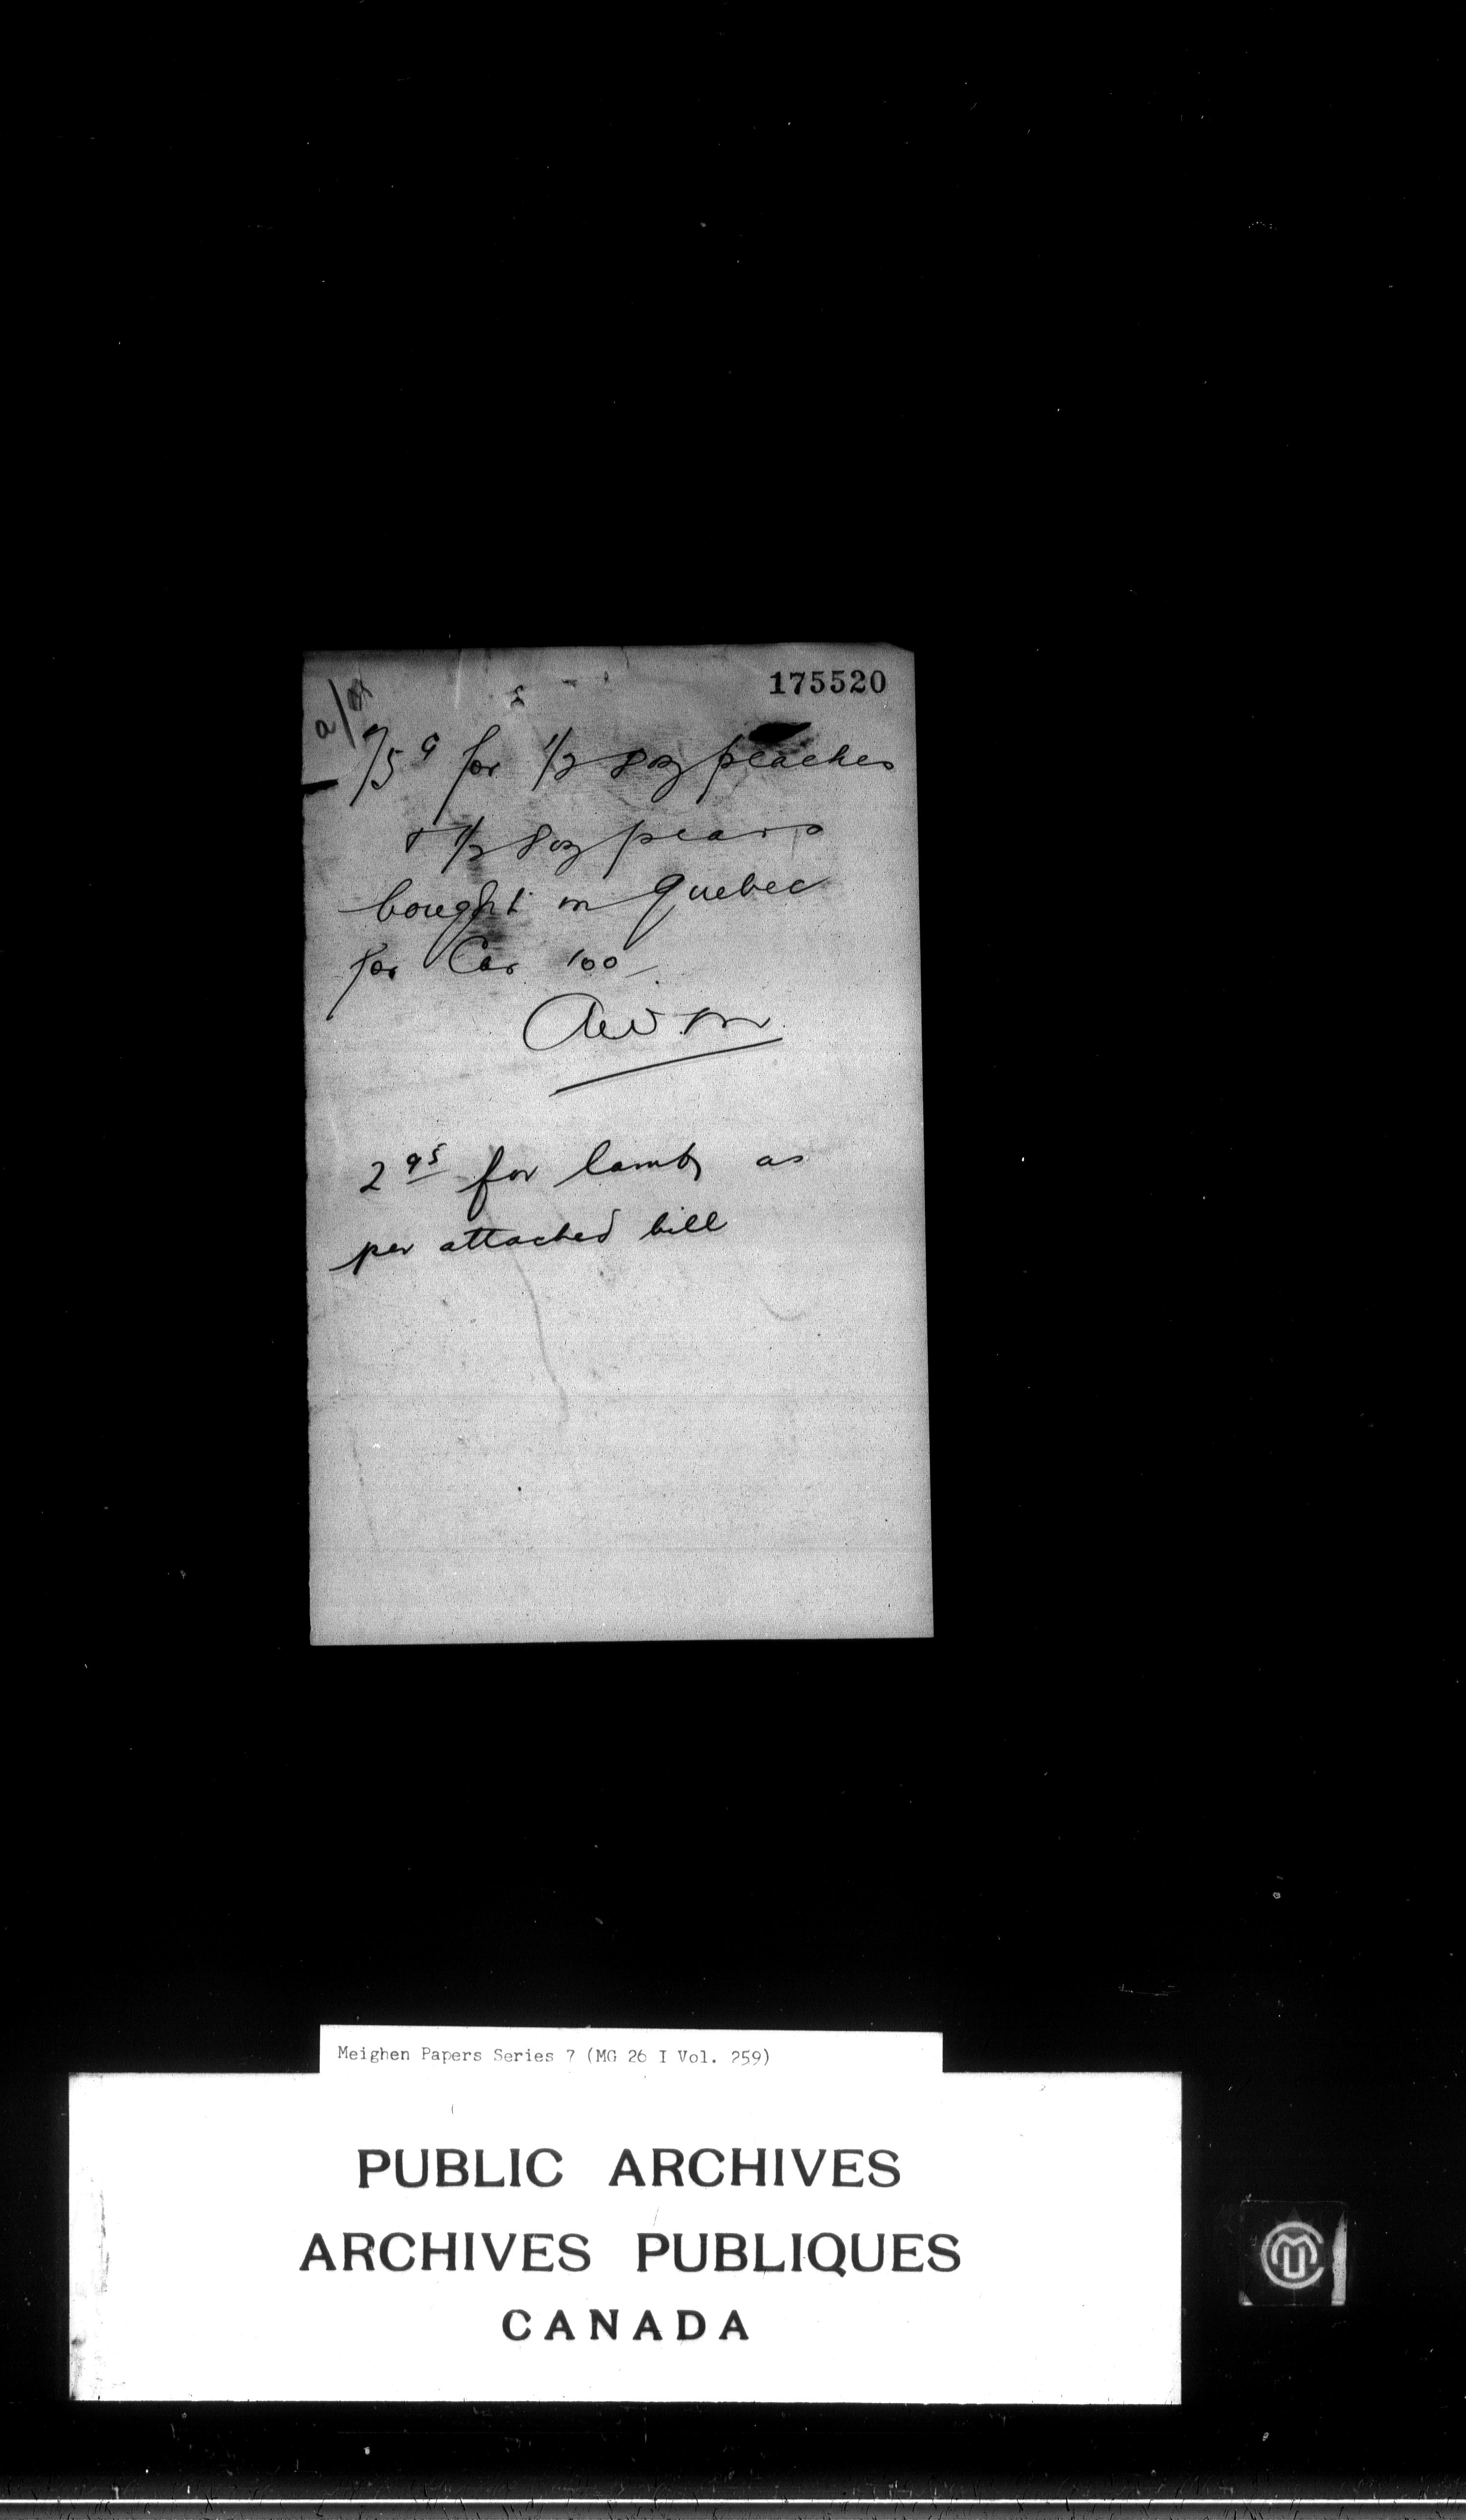 175520
75¢ for 1/2 doz peaches
+ 1/2 doz pears
bought in Quebec
for Car 100
2 95 for lamb as
per attached bill
Meighen Papers Series 7 (MG 26 I Vol. 259)
PUBLIC ARCHIVES
ARCHIVES PUBLIQUES
CANADA